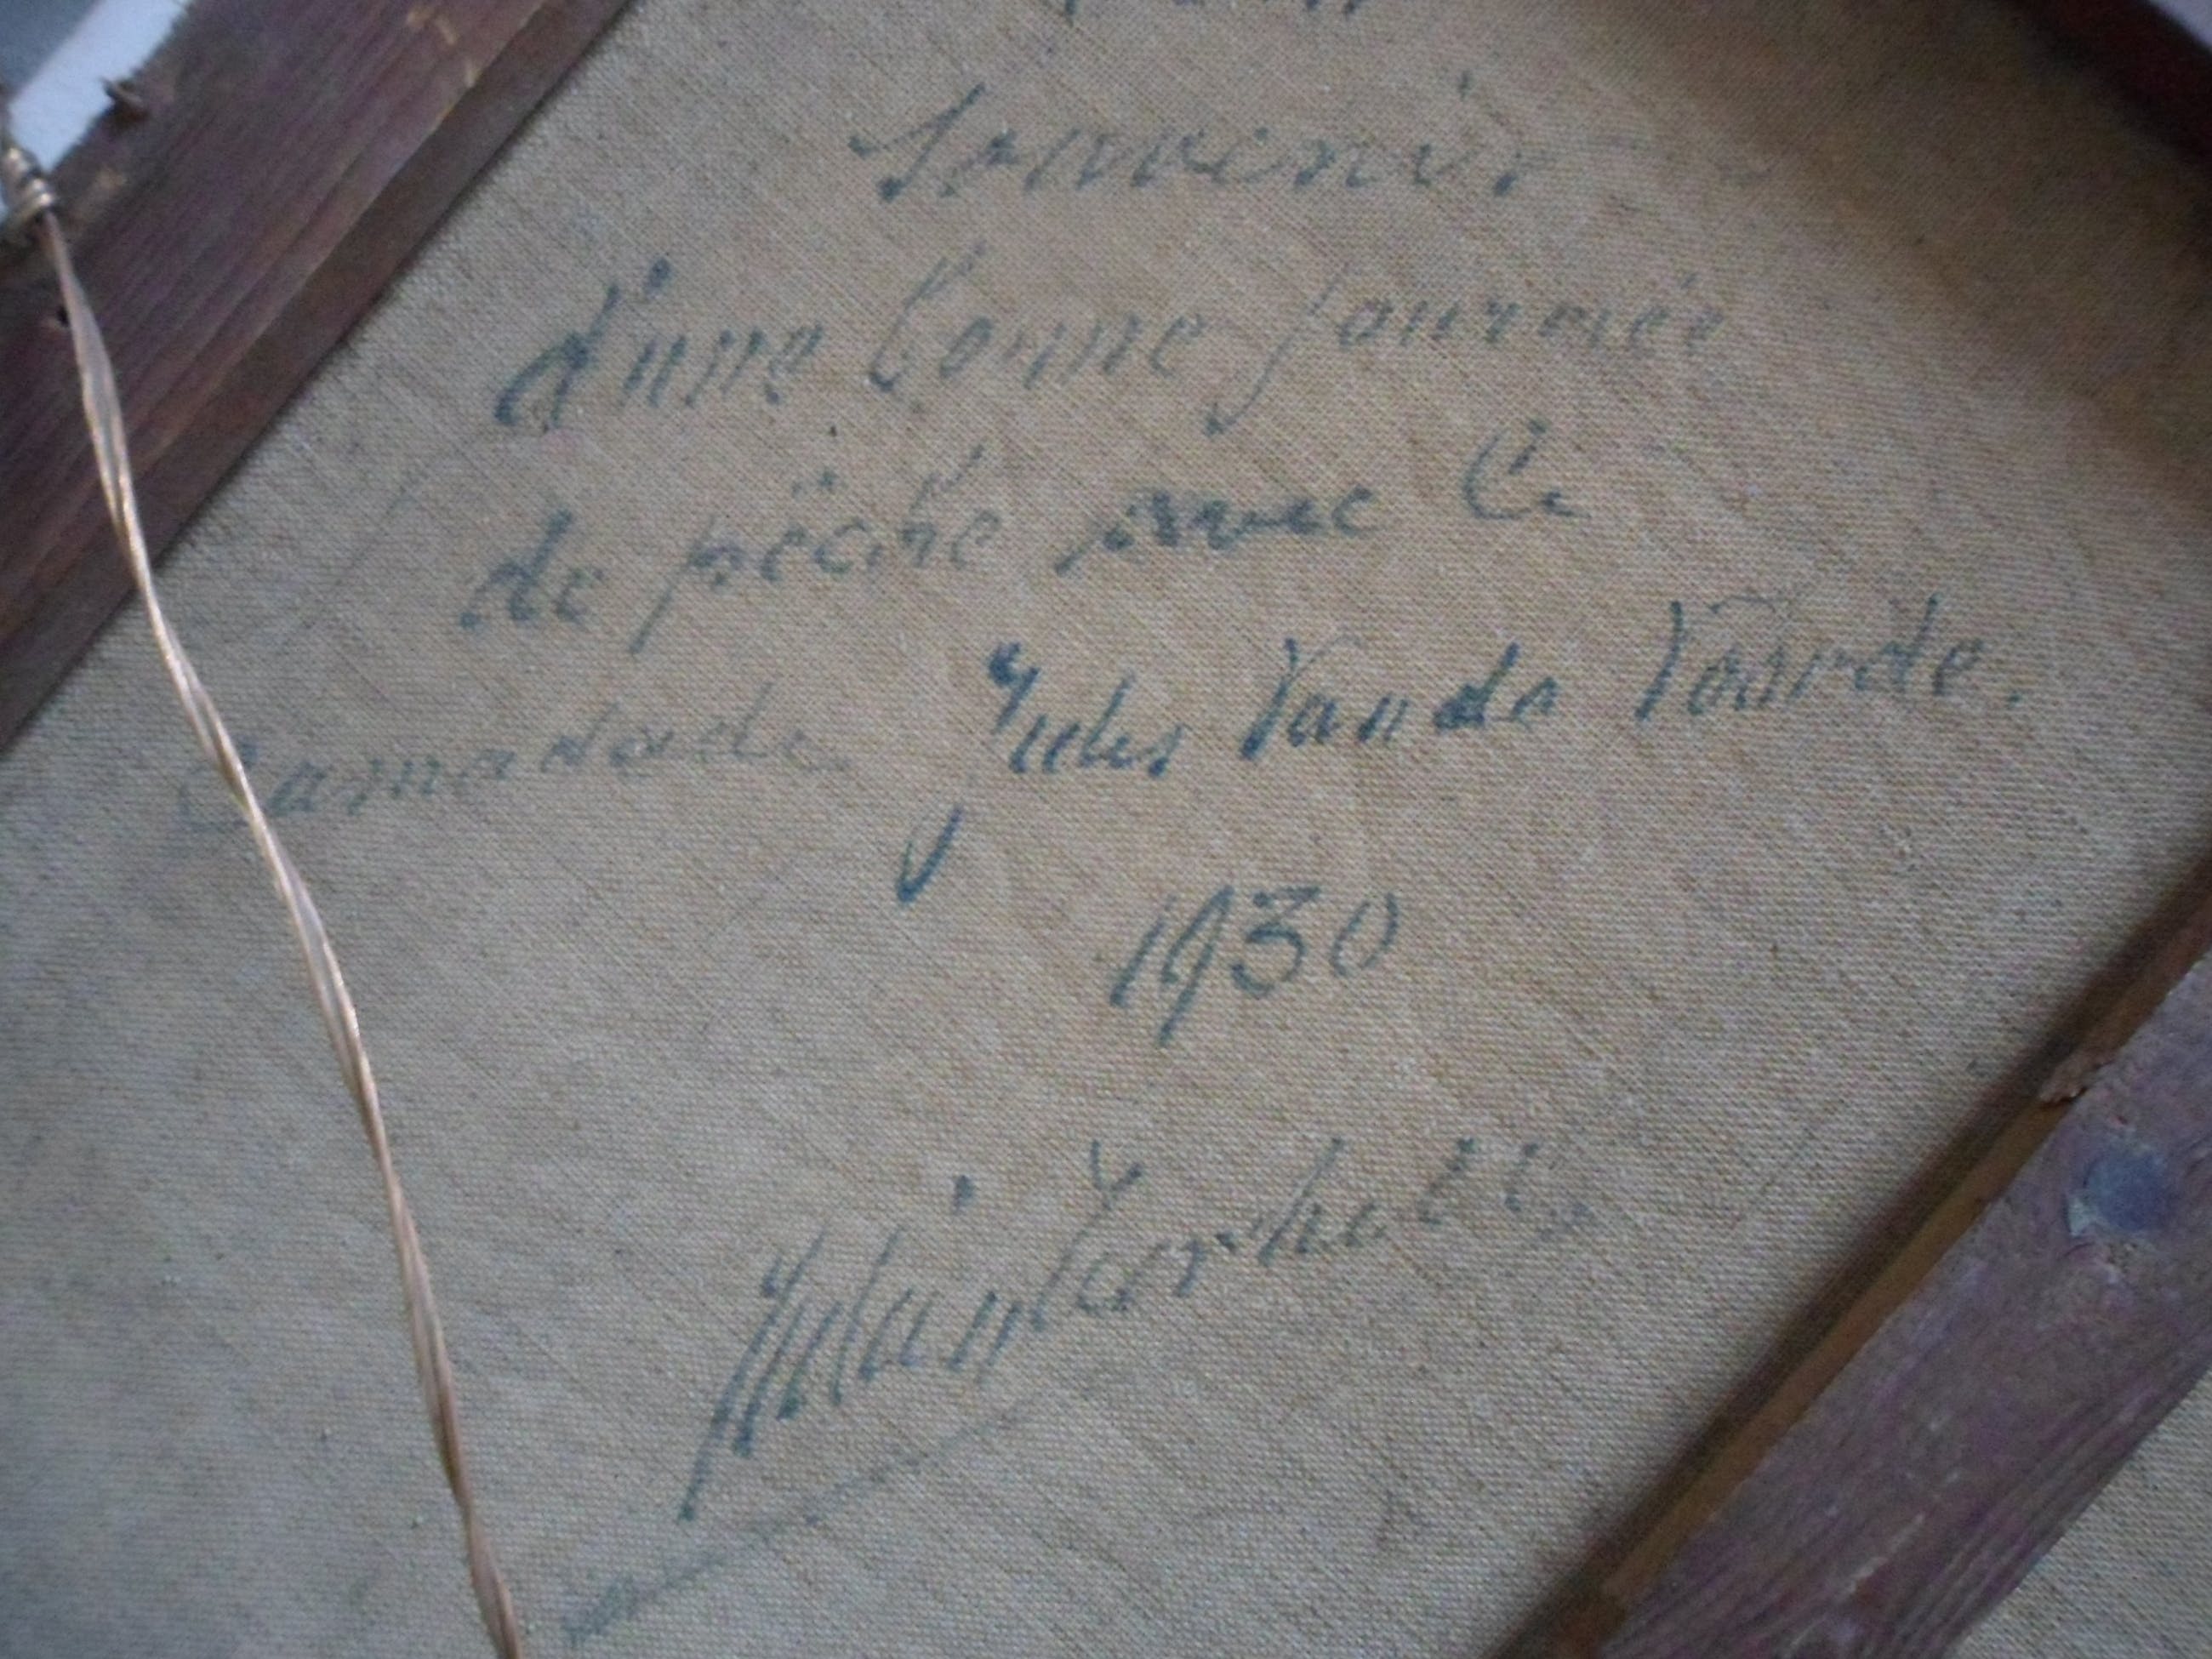 Souvenir
d'une bonne journée
de pêche avec le
Camarade Jules Vande Voorde.
1930
Julien